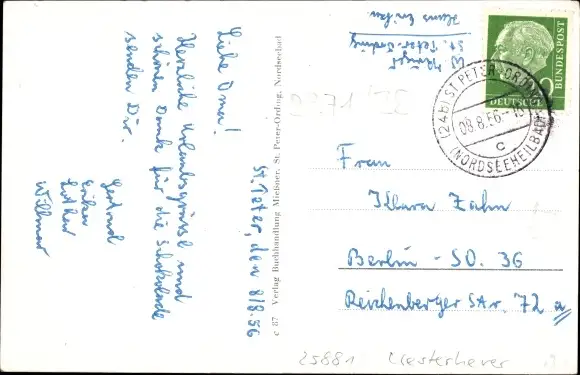 St. Peter, den 8/8.56
Liebe Oma!
Herzliche Urlaubsgrüsse und
schönen Dank für die Schokolade
senden Dir.
Gertrud
Erika
Lothar
Willmar
c 87 Verlag Buchhandlung Mießner, St. Peter-Ording, Nordseebad
St. Peter-Ording
Haus Erika
DEUTSCHE
BUNDESPOST
(24b) ST PETER-ORDING
08.8.56.-10
c
(NORDSEEHEILBAD)
Frau
Klara Zahn
Berlin - SO. 36
Reichenberger Str. 72 a
25881 Westerhever